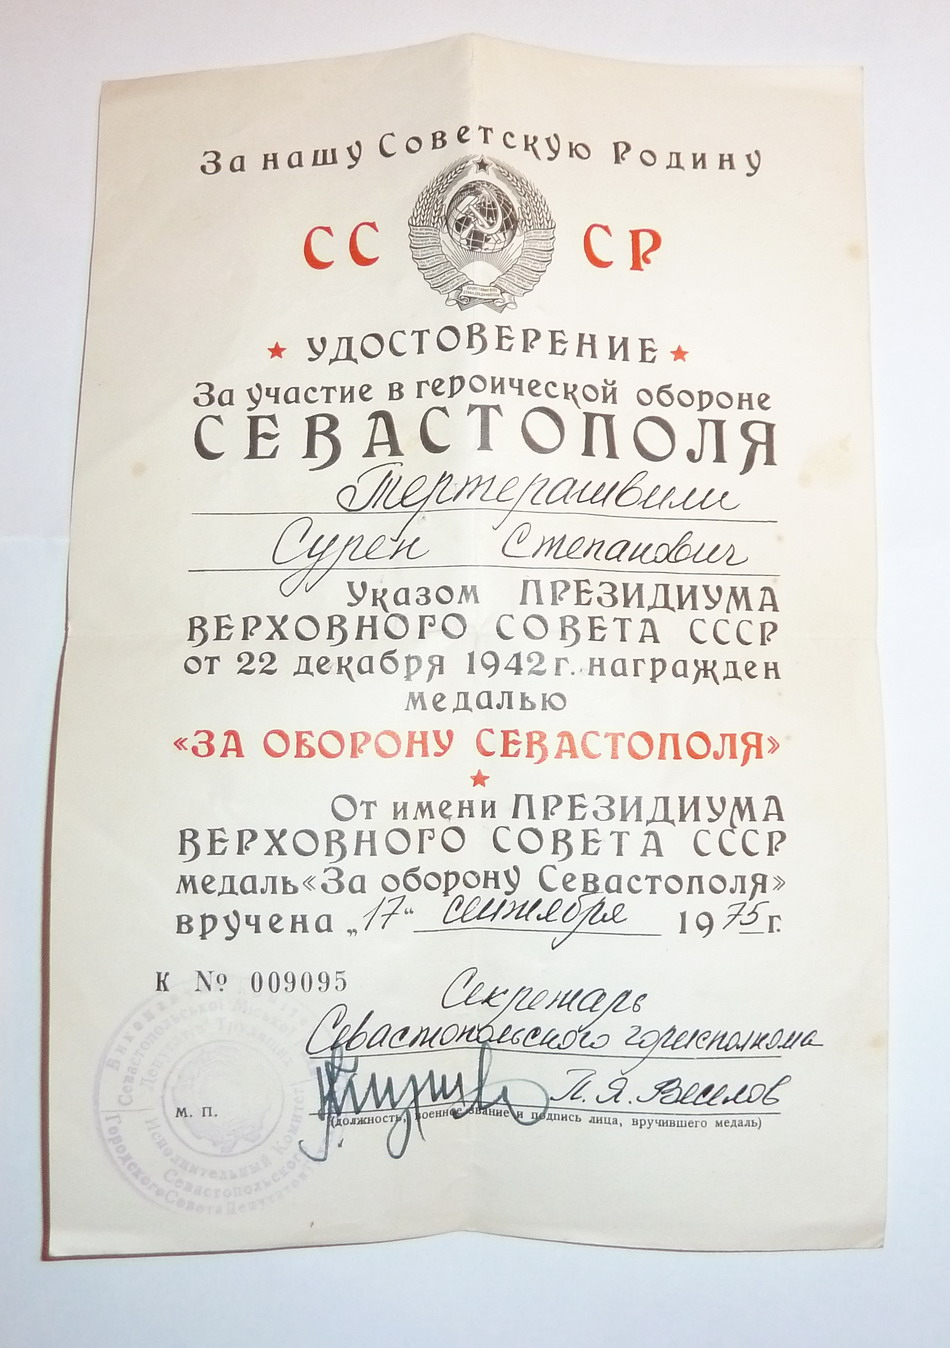 За нашу Советскую Родину
СССР
УДОСТОВЕРЕНИЕ
За участие в героической обороне
СЕВАСТОПОЛЯ
Тертерашвили
Сурен Степанович
Указом ПРЕЗИДИУМА
ВЕРХОВНОГО СОВЕТА СССР
от 22 декабря 1942 г. награжден
медалью
«ЗА ОБОРОНУ СЕВАСТОПОЛЯ»
От имени ПРЕЗИДИУМА
ВЕРХОВНОГО СОВЕТА СССР
медаль «За оборону Севастополя»
вручена „17“ сентября 1975 г.
К № 009095
Секретарь
Севастопольского горисполкома
П. Я. Веселов
М. П.
(должность, военное звание и подпись лица, вручившего медаль)
Севастопольської Міської
Исполнительный Комитет
Севастопольского
Городского Совета Депутатов